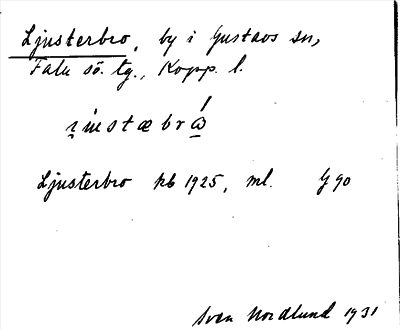 Ljusterbro, by i Gustavs sn,
Falu sö. tg., Kopp. l.
Ljusterbro kb 1925, ml. G 90
Sven Nordlund 1931